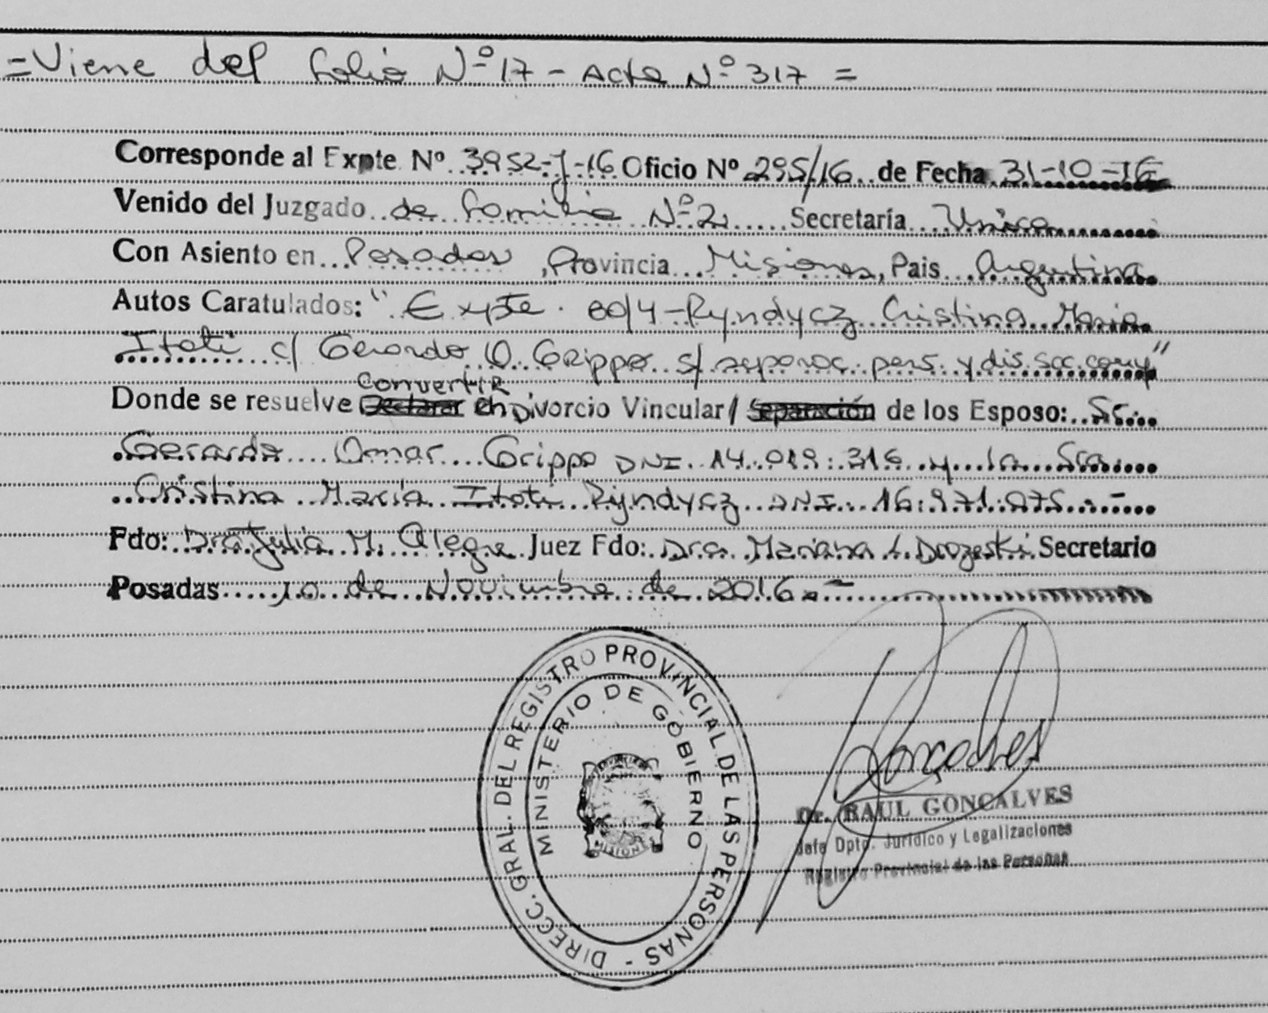 =Viene del folio Nº 17 - Acta Nº 317 =
Corresponde al Expte Nº 3952-J-16 Oficio Nº 295/16 de Fecha 31-10-16
Venido del Juzgado de Familia Nº 2 Secretaría Unica
Con Asiento en Posadas, Provincia Misiones, Pais Argentina
Autos Caratulados: "Expte. 80/4-Ryndycz Cristina Maria
Itati c/ Gerardo O. Grippo s/ separac. pers. y dis. soc. cony"
Convertir
Donde se resuelve Declarar en Divorcio Vincular / Separación de los Esposo: Sr.
Gerardo Omar Grippo DNI. 14.019.316 y la Sra.
Cristina María Itati Ryndycz DNI. 16.971.075.-
Fdo: Dra Julia M. Alegre Juez Fdo: Dra. Mariana L. Secretario
Posadas 10 de Noviembre de 2016.-
DIRECC. GRAL. DEL REGISTRO PROVINCIAL DE LAS PERSONAS -
MINISTERIO DE GOBIERNO
MISIONES
Dr. RAUL GONCALVES
Jefe Dpto. Jurídico y Legalizaciones
Registro Provincial de las Personas